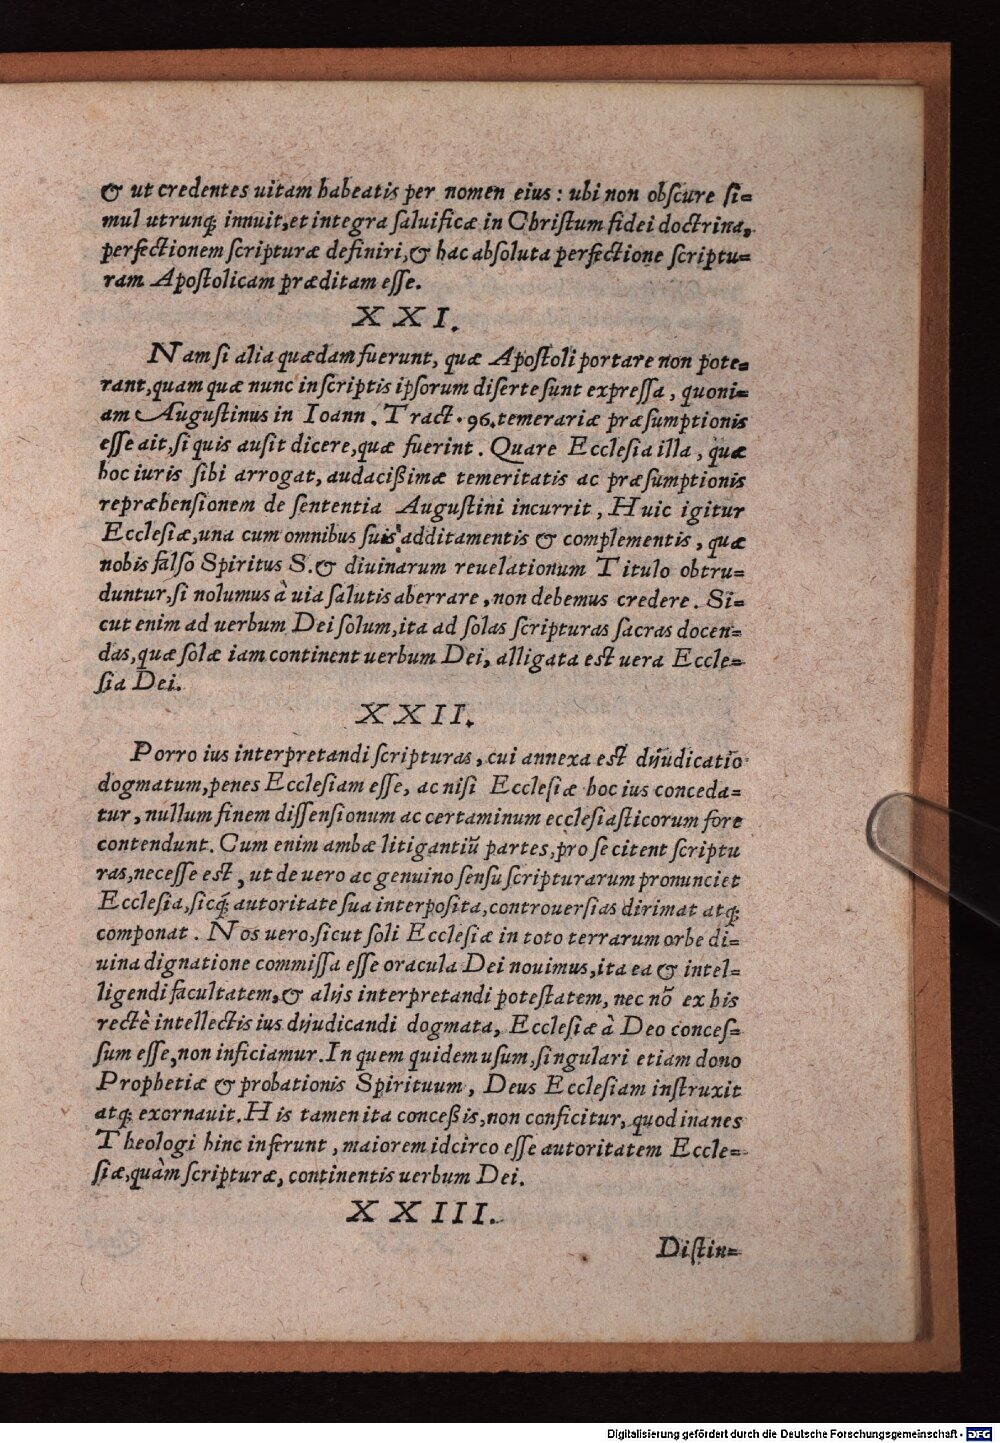 & ut credentes uitam habeatis per nomen eius: ubi non obſcure ſi=
mul utrunq; innuit, et integra ſaluificæ in Chriſtum fidei doctrina,
perfectionem ſcripturæ definiri, & hac abſoluta perfectione ſcriptu=
ram Apoſtolicam præditam eſſe.
XXI.
Nam ſi alia quædam fuerunt, quæ Apoſtoli portare non pote=
rant, quam quæ nunc in ſcriptis ipſorum diſerte ſunt expreſſa, quoni=
am Auguſtinus in Ioann. Tract. 96. temerariæ præſumptionis
eſſe ait, ſi quis auſit dicere, quæ fuerint. Quare Eccleſia illa, quæ
hoc iuris ſibi arrogat, audacißimæ temeritatis ac præſumptionis
repræhenſionem de ſententia Auguſtini incurrit, Huic igitur
Eccleſiæ, una cum omnibus ſuis additamentis & complementis, quæ
nobis falſo Spiritus S. & diuinarum reuelationum Titulo obtru=
duntur, ſi nolumus à uia ſalutis aberrare, non debemus credere. Si=
cut enim ad uerbum Dei ſolum, ita ad ſolas ſcripturas ſacras docen=
das, quæ ſolæ iam continent uerbum Dei, alligata eſt uera Eccle=
ſia Dei.
XXII.
Porro ius interpretandi ſcripturas, cui annexa eſt dijudicatio
dogmatum, penes Eccleſiam eſſe, ac niſi Eccleſiæ hoc ius conceda=
tur, nullum finem diſſenſionum ac certaminum eccleſiaſticorum fore
contendunt. Cum enim ambæ litigantiũ partes, pro ſe citent ſcriptu
ras, neceſſe eſt, ut de uero ac genuino ſenſu ſcripturarum pronunciet
Eccleſia, ſicq; autoritate ſua interpoſita, controuerſias dirimat atq;
componat. Nos uero, ſicut ſoli Eccleſiæ in toto terrarum orbe di=
uina dignatione commiſſa eſſe oracula Dei nouimus, ita ea & intel=
ligendi facultatem, & alijs interpretandi poteſtatem, nec nõ ex his
rectè intellectis ius dijudicandi dogmata, Eccleſiæ à Deo conceſ=
ſum eſſe, non inficiamur. In quem quidem uſum, ſingulari etiam dono
Prophetiæ & probationis Spirituum, Deus Eccleſiam inſtruxit
atq; exornauit. His tamen ita conceßis, non conficitur, quod inanes
Theologi hinc inferunt, maiorem idcirco eſſe autoritatem Eccle=
ſiæ, quàm ſcripturæ, continentis uerbum Dei.
XXIII.
Diſtin=
Digitalisierung gefördert durch die Deutsche Forschungsgemeinschaft - DFG